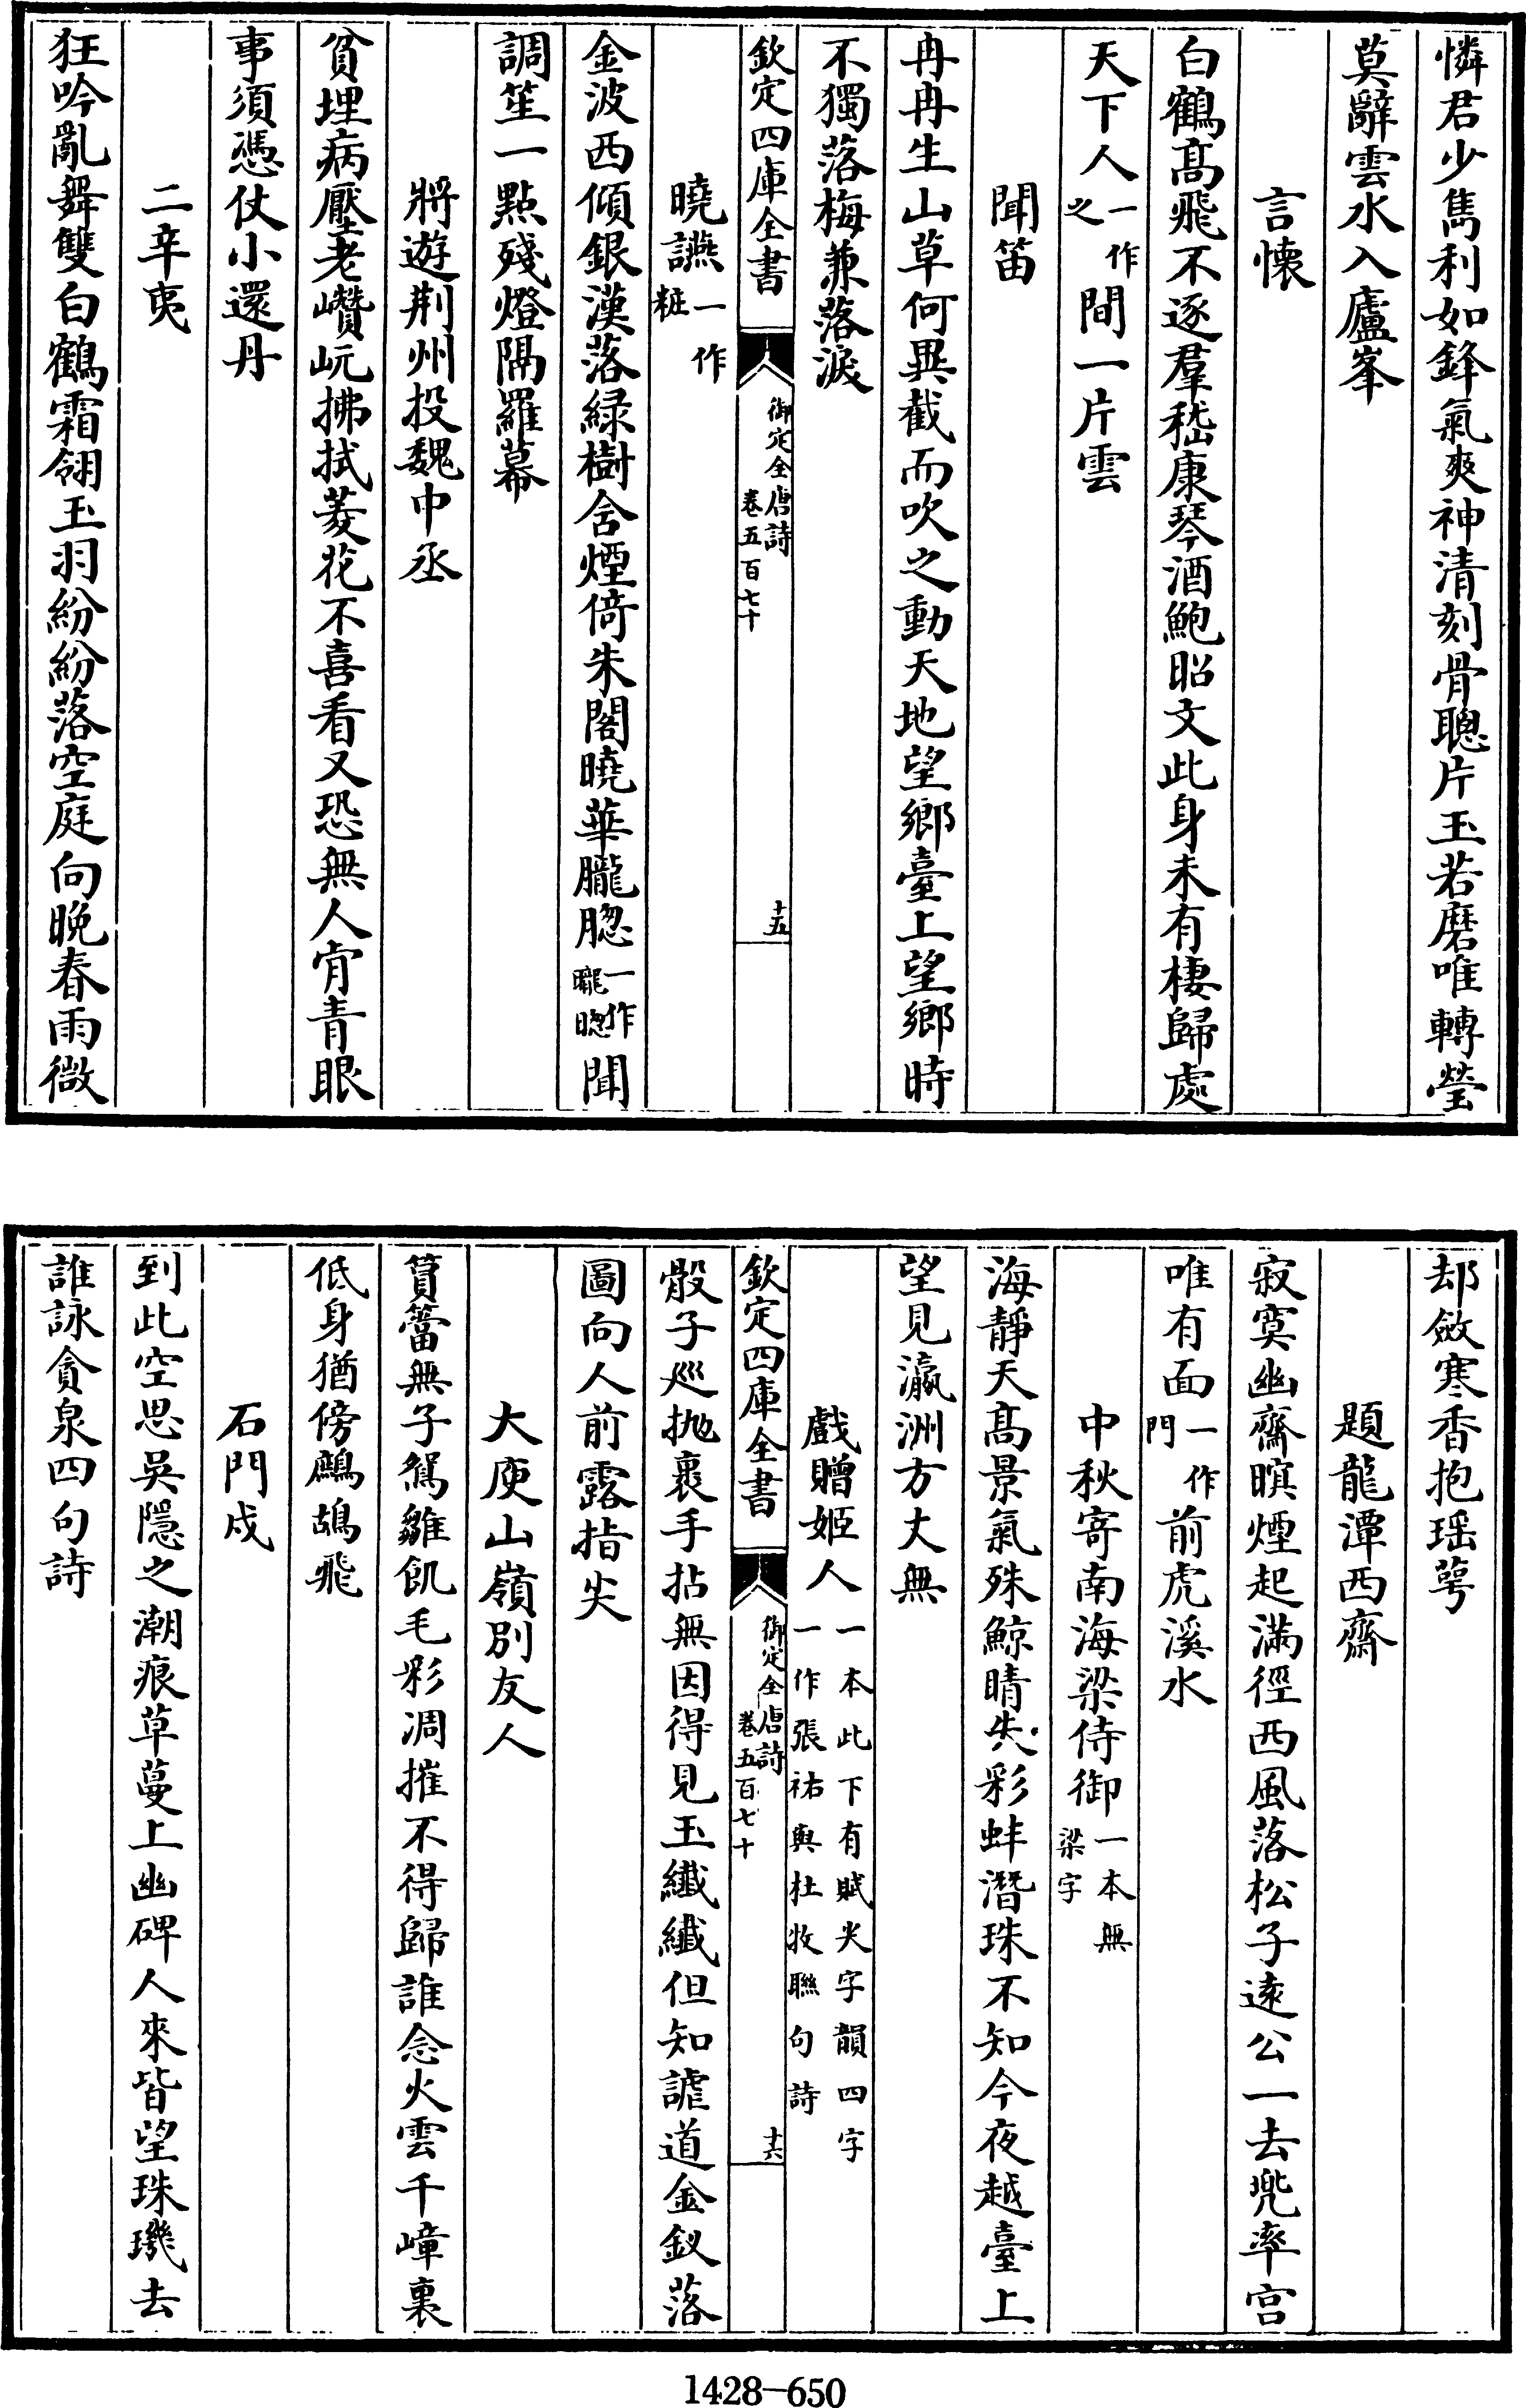 憐君少雋利如鋒氣爽神清刻骨聰片玉若磨唯轉瑩
莫辭雲水入廬峯
言懷
白鶴髙飛不逐羣嵇康琴酒鮑昭文此身未有棲歸處
天下人一作之間一片雲
聞笛
冉冉生山草何異截而吹之動天地望鄉臺上望鄉時
不獨落梅兼落淚
欽定四庫全書 御定全唐詩卷五百七十 十五
曉讌一作粧
金波西傾銀漢落緑樹含煙倚朱閣曉華朧朡一作曨㬻聞
調笙一點殘燈隔羅幕
將遊荆州投魏中丞
貧埋病壓老巑岏拂拭菱花不喜看又恐無人肯青眼
事須憑仗小還丹
二辛夷
狂吟亂舞雙白鶴霜翎玉羽紛紛落空庭向晚春雨微
却斂寒香抱瑶萼
題龍潭西齋
寂寞幽齋暝煙起滿徑西風落松子逺公一去兜率宫
唯有面一作門前虎溪水
中秋寄南海梁侍御一本無梁字
海靜天髙景氣殊鯨睛失彩蚌潛珠不知今夜越臺上
望見瀛洲方丈無
戲贈姬人一本此下有賦尖字韻四字一作張祐與杜牧聯句詩
欽定四庫全書 御定全唐詩卷五百七十 十六
骰子巡抛裹手拈無因得見玉纎纎但知謔道金釵落
圖向人前露指尖
大庾山嶺别友人
篔簹無子鴛雛飢毛彩凋摧不得歸誰念火雲千嶂裏
低身猶傍鷓鴣飛
石門戍
到此空思吳隱之潮痕草蔓上幽碑人來皆望珠璣去
誰詠貪泉四句詩
1428-650